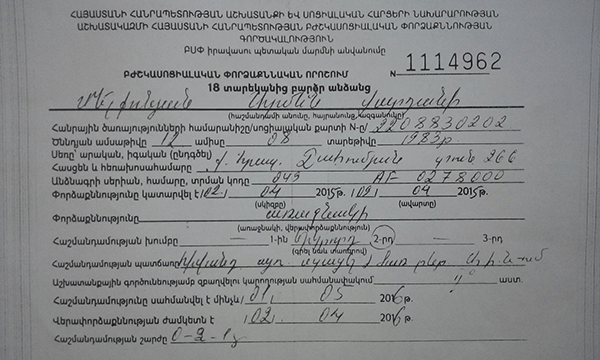 ՀԱՅԱՍՏԱՆԻ ՀԱՆՐԱՊԵՏՈՒԹՅԱՆ ԱՇԽԱՏԱՆՔԻ ԵՎ ՍՈՑԻԱԼԱԿԱՆ ՀԱՐՑԵՐԻ ՆԱԽԱՐԱՐՈՒԹՅԱՆ
ԱՇԽԱՏԱԿԱԶՄԻ ՀԱՅԱՍՏԱՆԻ ՀԱՆՐԱՊԵՏՈՒԹՅԱՆ ԲԺՇԿԱՍՈՑԻԱԼԱԿԱՆ ՓՈՐՁԱՔՆՆՈՒԹՅԱՆ
ԳՈՐԾԱԿԱԼՈՒԹՅՈՒՆ
ԲՍՓ իրավասու պետական մարմնի անվանումը
ԲԺՇԿԱՍՈՑԻԱԼԱԿԱՆ ՓՈՐՁԱՔՆՆԱԿԱՆ ՈՐՈՇՈՒՄ N 1114962
18 տարեկանից բարձր անձանց
(հաշմանդամի անունը, հայրանունը, ազգանունը)
Հանրային ծառայությունների համարանիշ/սոցիալական քարտի N-ը/ 2208830202
Ծննդյան ամսաթիվը 12 ամիսը 08 տարեթիվը 1983թ
Սեռը՝ արական, իգական (ընդգծել)
Հասցեն և հեռախոսահամարը 266
Անձնագրի սերիան, համարը, տրման կոդը 043 AF 0278000
Փորձաքննությունը կատարվել է 02 04 2015թ. 09 04 2015թ.
(սկիզբը) (ավարտը)
Փորձաքննությունը առաջնակի
(առաջնակի, վերափորձաքննություն)
Հաշմանդամության խումբը — 1-ին երկրորդ 2-րդ — 3-րդ
(գրել նաև տառերով)
Հաշմանդամության պատճառը
Աշխատանքային գործունեությամբ զբաղվելու կարողության սահմանափակում աստ.
Հաշմանդամությունը սահմանվել է մինչև 01 05 2016թ.
Վերափորձաքննության ժամկետն է 02 04 2016թ.
Հաշմանդամության շարժը